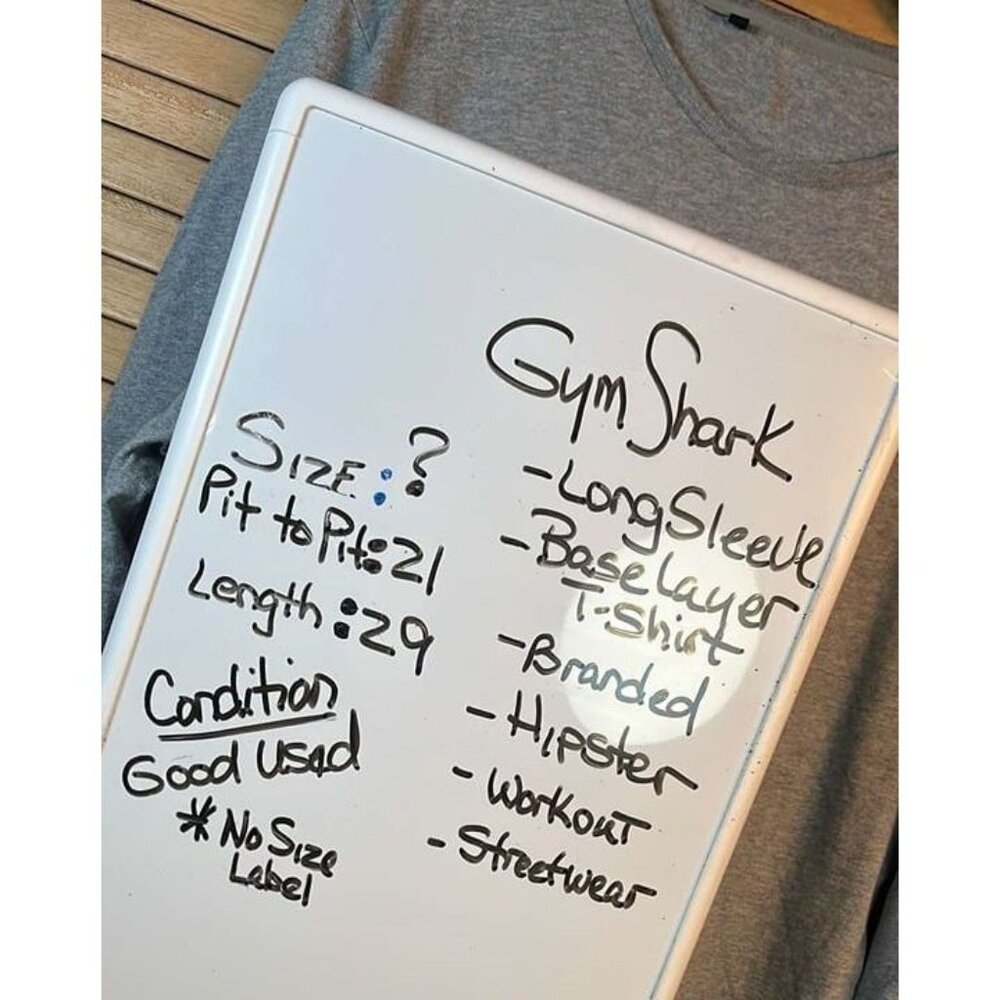 Gym Shark
Size: ?
Pit to Pit: 21
Length: 29
Condition
Good Used
* No Size
Label
- Long Sleeve
- Base layer
T-Shirt
- Branded
- Hipster
- Workout
- Streetwear